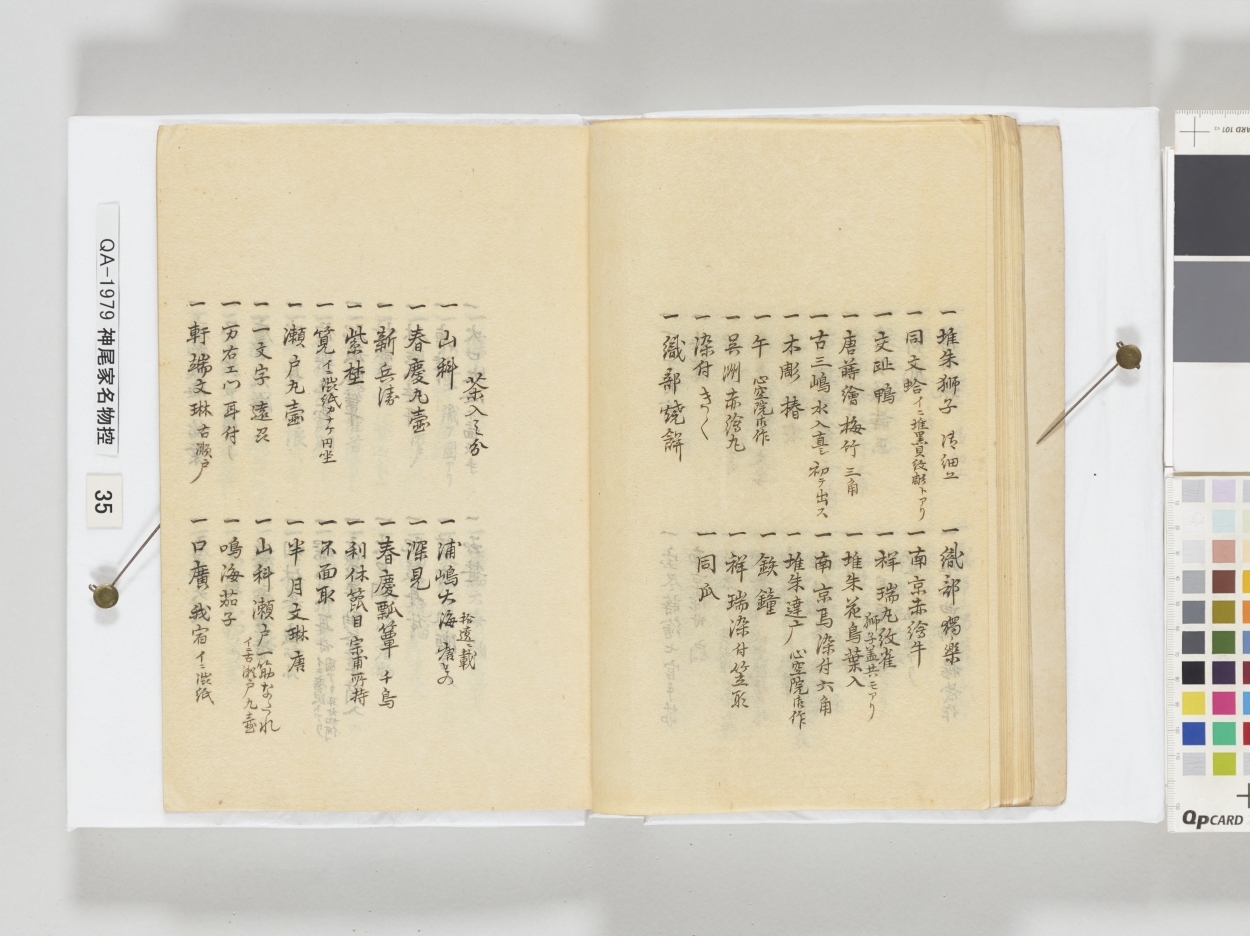 一堆朱獅子　清細工
一同文蛤　イニ堆黒貝紋彫トアリ
一交趾鴨
一唐蒔繪　梅竹　三角
一古三嶋　水入真シ　初テ出ス
一木彫椿
一午　心空院御作
一呉洲赤繪丸
一染付きく
一織部焼餅
一織部獨樂
一南京赤繪牛
一祥瑞丸紋雀
獅子蓋共ニモアリ
一堆朱花鳥葉入
一南京馬染付六角
一堆朱達广　心空院御作
一鉄鐘
一祥瑞染付笠形
一同瓜
茶入之分
一山科
一春慶丸壷
一新兵衛
一紫埜
一筧　イニ渋紙カナケ円坐
一瀬戸丸壷
一一文字
一万右エ门耳付
一軒端文琳　古瀬戸
一浦嶋大海
一深見
一春慶瓢箪　千鳥
一利休筋目　宗甫所持
一不面取
一半月文琳　唐
一山科瀬戸一筋なたれ
イニ古瀬戸丸壷
一鳴海茄子
一口廣　我宿　イニ渋紙
QA-1979 神尾家名物控
35
QPCARD